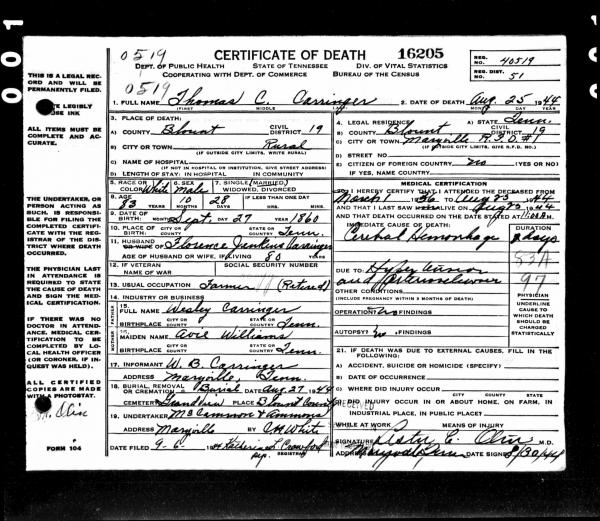 001
0519
CERTIFICATE OF DEATH
16205
DEPT. OF PUBLIC HEALTH STATE OF TENNESSEE DIV. OF VITAL STATISTICS
COOPERATING WITH DEPT. OF COMMERCE BUREAU OF THE CENSUS
REG. NO. 40519
REG. DIST. 51
0519
1. FULL NAME Thomas C. Carringer
(FIRST) (MIDDLE)
2. DATE OF DEATH Aug. 25, 1944
MONTH DAY YEAR
THIS IS A LEGAL RECORD AND WILL BE PERMANENTLY FILED.
TE LEGIBLY
USE INK
ALL ITEMS MUST BE COMPLETE AND ACCURATE.
THE UNDERTAKER, OR PERSON ACTING AS SUCH, IS RESPONSIBLE FOR FILING THE COMPLETED CERTIFICATE WITH THE REGISTRAR OF THE DISTRICT WHERE DEATH OCCURRED.
THE PHYSICIAN LAST IN ATTENDANCE IS REQUIRED TO STATE THE CAUSE OF DEATH AND SIGN THE MEDICAL CERTIFICATION.
IF THERE WAS NO DOCTOR IN ATTENDANCE, MEDICAL CERTIFICATION TO BE COMPLETED BY LOCAL HEALTH OFFICER (OR CORONER, IF INQUEST WAS HELD).
ALL CERTIFIED COPIES ARE MADE WITH A PHOTOSTAT.
FORM 104
3. PLACE OF DEATH:
A) COUNTY Blount CIVIL DISTRICT 19
B) CITY OR TOWN Rural
(IF OUTSIDE CITY LIMITS, WRITE RURAL)
C) NAME OF HOSPITAL
(IF NOT IN HOSPITAL OR INSTITUTION, GIVE STREET ADDRESS)
D) LENGTH OF STAY: IN HOSPITAL IN COMMUNITY
4. LEGAL RESIDENCE: A) STATE Tenn.
B) COUNTY Blount CIVIL DISTRICT 19
C) CITY OR TOWN Maryville R.F.D. #1
(IF OUTSIDE CITY LIMITS, GIVE R.F.D. NO.)
D) STREET NO
E) CITIZEN OF FOREIGN COUNTRY? no (YES OR NO)
IF YES, NAME COUNTRY
5. RACE OR COLOR White 6. SEX Male 7. SINGLE, (MARRIED,) WIDOWED, DIVORCED
8. AGE 83 10 28 IF LESS THAN ONE DAY
YEARS MONTHS DAYS HRS. MINS.
9. DATE OF BIRTH: Sept. 27 1860
MONTH DAY YEAR
10. PLACE OF BIRTH: STATE OR COUNTRY Tenn.
11. HUSBAND OR WIFE OF Florence Jenkins Carringer
AGE OF HUSBAND OR WIFE, IF LIVING 80 YEARS
12. IF VETERAN NAME OF WAR SOCIAL SECURITY NUMBER
13. USUAL OCCUPATION Farmer (Retired)
14. INDUSTRY OR BUSINESS
15. FULL NAME Wesley Carringer
BIRTHPLACE CITY OR COUNTY STATE OR COUNTRY Tenn.
16. MAIDEN NAME Avie Williams
BIRTHPLACE CITY OR COUNTY STATE OR COUNTRY Tenn.
17. INFORMANT W. B. Carringer
ADDRESS Maryville, Tenn.
18. BURIAL, REMOVAL OR CREMATION Burial DATE Aug. 27, 1944
CEMETERY Grandview PLACE Blount County
19. UNDERTAKER McCammon & Ammons
ADDRESS Maryville
DATE FILED 9-6 1944 Katherine L. Crawford
REGISTRAR
MEDICAL CERTIFICATION
20. I HEREBY CERTIFY THAT I ATTENDED THE DECEASED FROM
March 1936 TO Aug 25 1944
AND THAT I LAST SAW HIM LIVE ON Aug 25 1944
AND THAT DEATH OCCURRED ON THE DATE STATED AT
IMMEDIATE CAUSE OF DEATH:
Cerebral Hemorrhage
DURATION
2 days
83A
DUE TO:
and Arteriosclerosis
97
OTHER CONDITIONS
(INCLUDE PREGNANCY WITHIN 3 MONTHS OF DEATH)
OPERATION? no FINDINGS
AUTOPSY? no FINDINGS
PHYSICIAN UNDERLINE CAUSE TO WHICH DEATH SHOULD BE CHARGED STATISTICALLY
21. IF DEATH WAS DUE TO EXTERNAL CAUSES, FILL IN THE FOLLOWING:
A) ACCIDENT, SUICIDE OR HOMICIDE (SPECIFY)
B) DATE OF OCCURRENCE
C) WHERE DID INJURY OCCUR
D) DID INJURY OCCUR IN OR ABOUT HOME, ON FARM, IN INDUSTRIAL PLACE, IN PUBLIC PLACE?
RECEIVED
WHILE AT WORK MEANS OF INJURY
SIGNATURE Lester C. Olin M.D.
ADDRESS Maryville Tenn DATE SIGNED 8/30/44